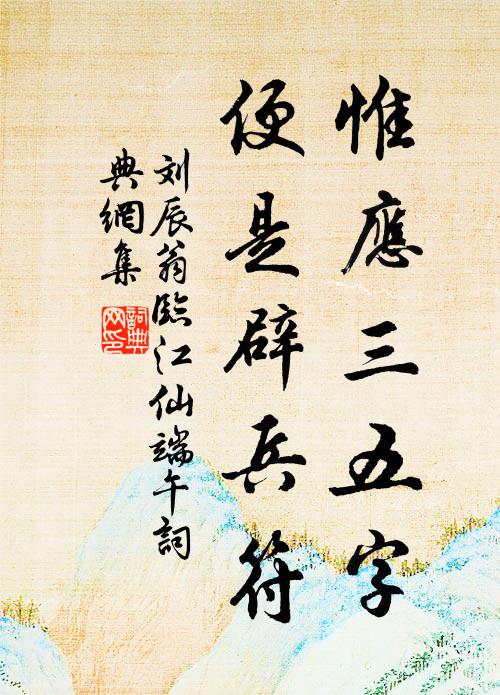 惟應三五字
便是辟兵符
刘辰翁臨江仙端午詞
典網集
詞典
网印